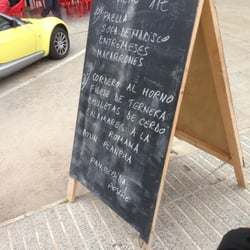 PAELLA
SOPA DE MARISCO
ENTREMESES
MACARRONES
CORDERO AL HORNO
FILETE DE TERNERA
CHULETAS DE CERDO
CALAMARES A LA
ROMANA
PLANCHA